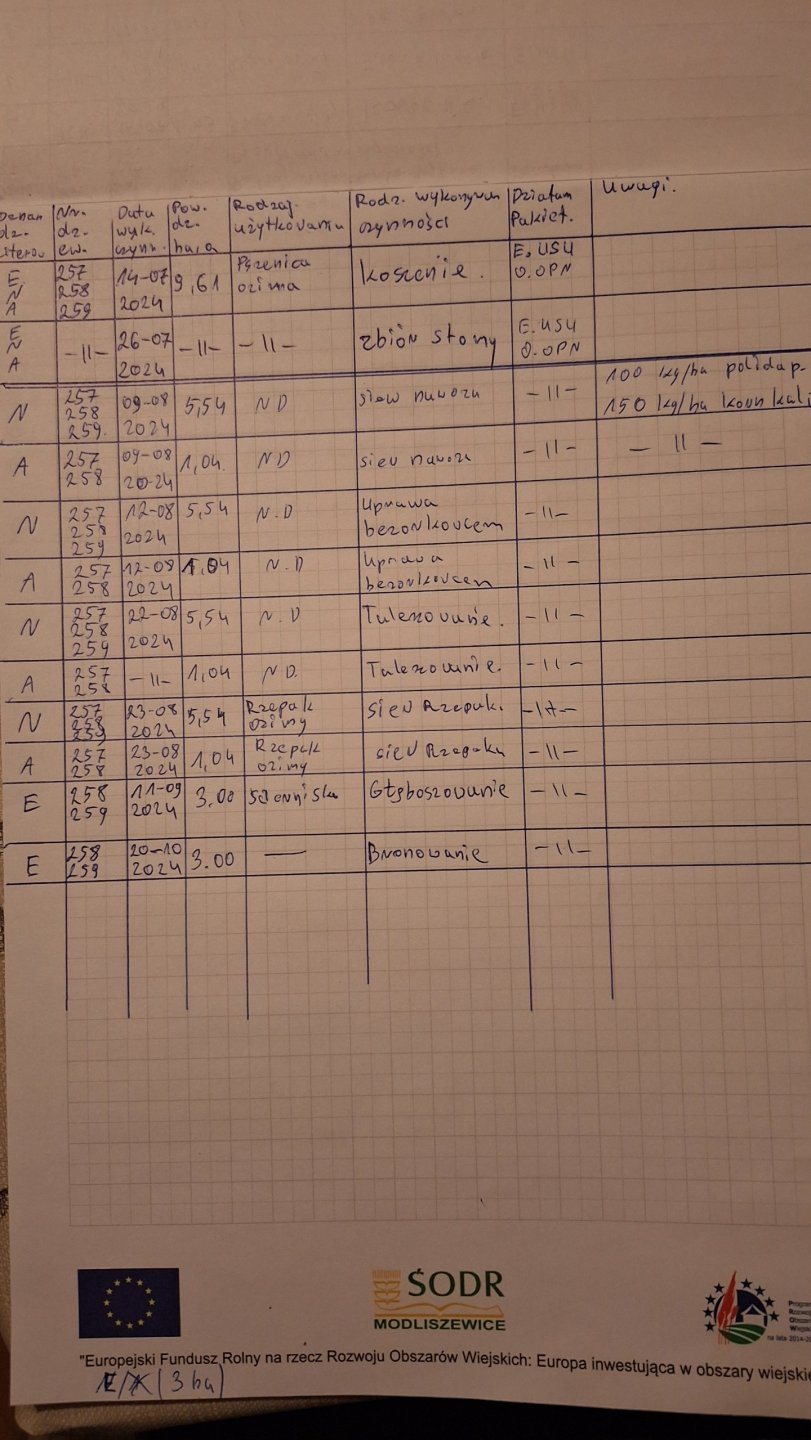 Oznan Nr. Data Pow. Rodzaj. Rodz. wykonywan Działan Uwagi.
dz. dz. wyk. dz. użytkowania czynności Pakiet.
literow ew. czynn. ha,a
E 257 14-07 9,61 Pszenica koszenie. E.USU
N 258 2024 ozima O.OPN
A 259
E 26-07 E.USU
N -||- 2024 -||- -||- zbiór słomy O.OPN
A
N 257 09-08 5,54 ND siew nawozu -||- 100 kg/ha polidap.
258 2024 150 kg/ha kornkali
259.
A 257 09-08 1,04. ND siew nawozu -||- - || -
258 2024
N 257 12-08 5,54 N.D Uprawa -||-
258 2024 bezorkowcem
259
A 257 12-08 1.04 N.D Uprawa -||-
258 2024 bezorkowcem
N 257 22-08 5,54 N.D Talerzowanie. -||-
258 2024
259
A 257 -||- 1,04 ND. Talerzowanie. -||-
258
N 257 23-08 5,54 Rzepak siew Rzepaku. -||-
258 2024 ozimy
259
A 257 23-08 1,04 Rzepak siew Rzepaku -||-
258 2024 ozimy
E 258 11-09 3.00 ściernisko Głęboszowanie -||-
259 2024
E 258 20-10 3.00 — Bronowanie -||-
259 2024
ŚODR
MODLISZEWICE
Program
Rozwoju
Obszarów
Wiejskich
na lata 2014-20
"Europejski Fundusz Rolny na rzecz Rozwoju Obszarów Wiejskich: Europa inwestująca w obszary wiejskie
(3 ha)